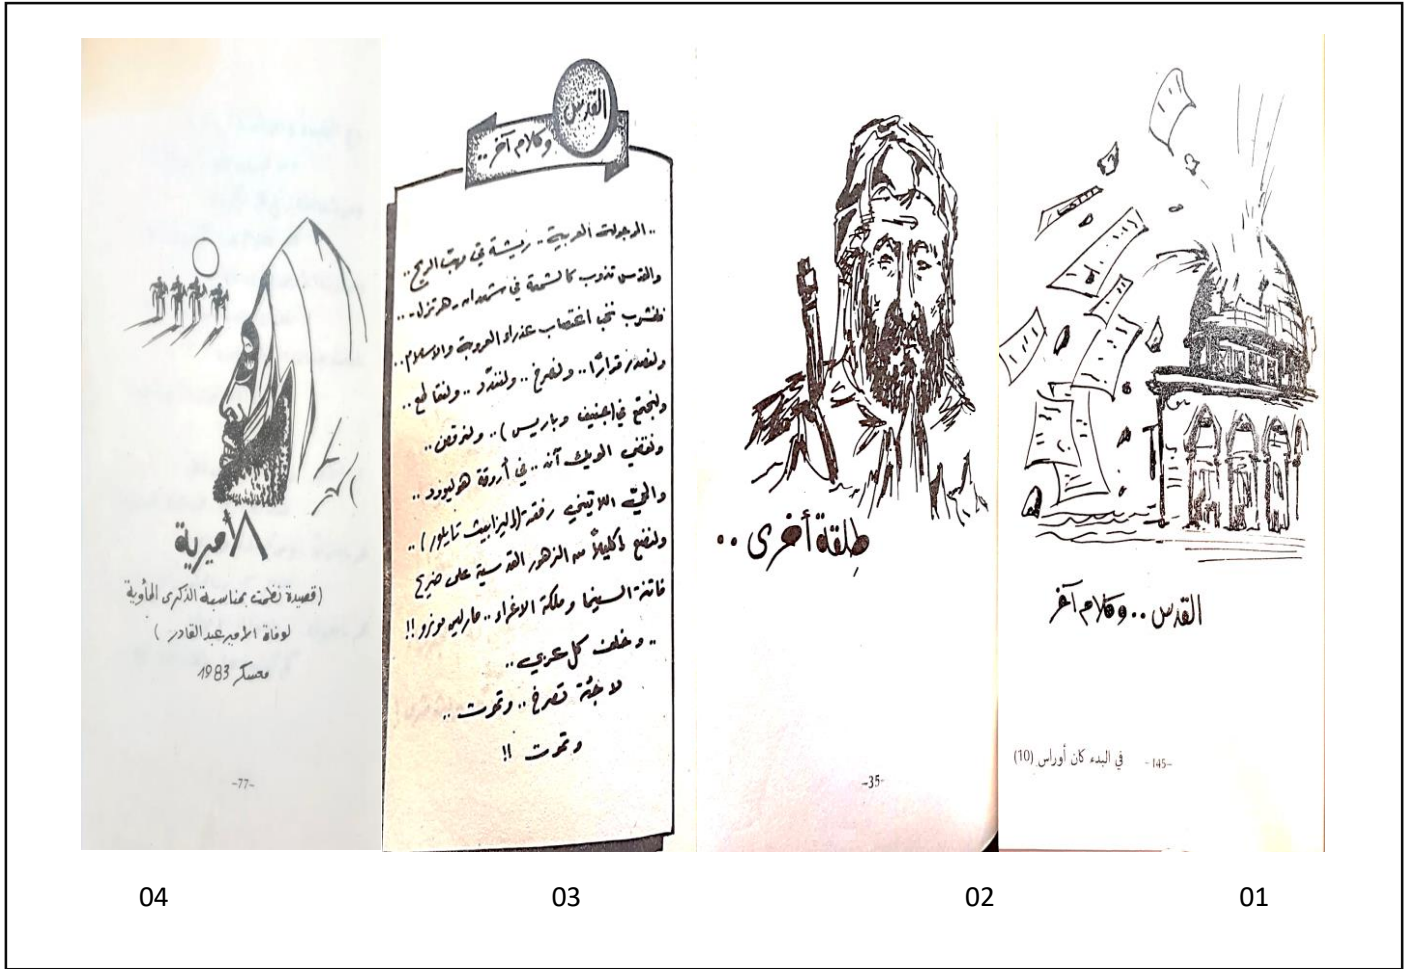 القدس .. وكلام آخر
-145- في البدء كان أوراس (10)
طلقة أخرى ..
-35-
القدس
وكلام آخر ..
.. الرجولة العربية .. ريشة في مهب الريح ..
والقدس تذوب كالشمعة في شمعدان هرتزل ..
فلنشرب نخب اغتصاب عذراء العروبة والاسلام ..
ولنصدر قرارًا .. ولنصرخ .. ولنندد .. ولنقاطع ..
ولنجتمع في (جنيف وباريس) .. ولنرقص ..
ونقضي الويك آند .. في أروقة هوليوود ..
والحيّ اللاتيني رفقة (اليزابيث تايلور) ..
ولنضع إكليلاً من الزهور القدسية على ضريح
فاتنة السينما وملكة الاغراء .. مارلين مونرو !!
.. وخلف كل عربي ..
لاجئة تصرخ .. وتموت ..
وتموت !!
الأميرية
(قصيدة نظمت بمناسبة الذكرى المأوية
لوفاة الامير عبد القادر )
معسكر 1983
-77-
01
02
03
04